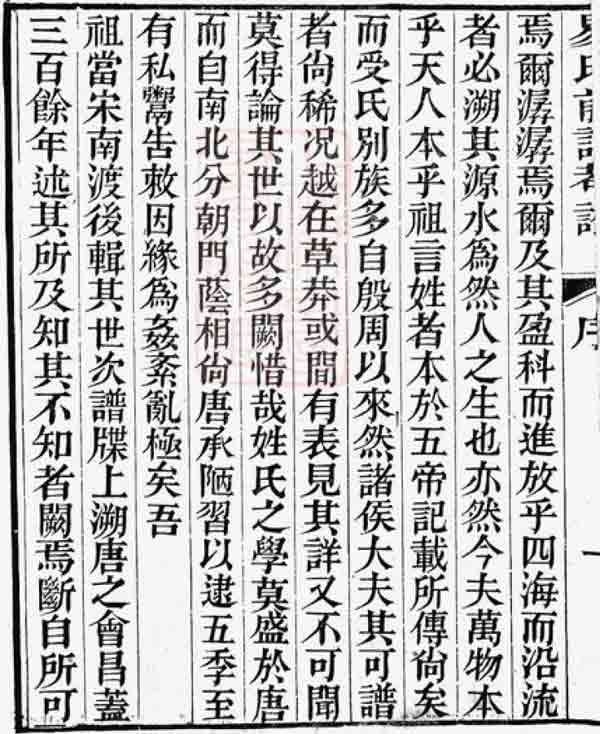 序
一
焉爾潺潺焉爾及其盈科而進放乎四海而沿流
者必溯其源水爲然人之生也亦然今夫萬物本
乎天人本乎祖言姓者本於五帝記載所傳尙矣
而受氏別族多自殷周以來然諸侯大夫其可譜
者尙稀况越在草莽或間有表見其詳又不可聞
莫得論其世以故多闕惜哉姓氏之學莫盛於唐
而自南北分朝門蔭相尙唐承陋習以逮五季至
有私鬻告敕因緣爲姦紊亂極矣吾
祖當宋南渡後輯其世次譜牒上溯唐之會昌蓋
三百餘年述其所及知其不知者闕焉斷自所可